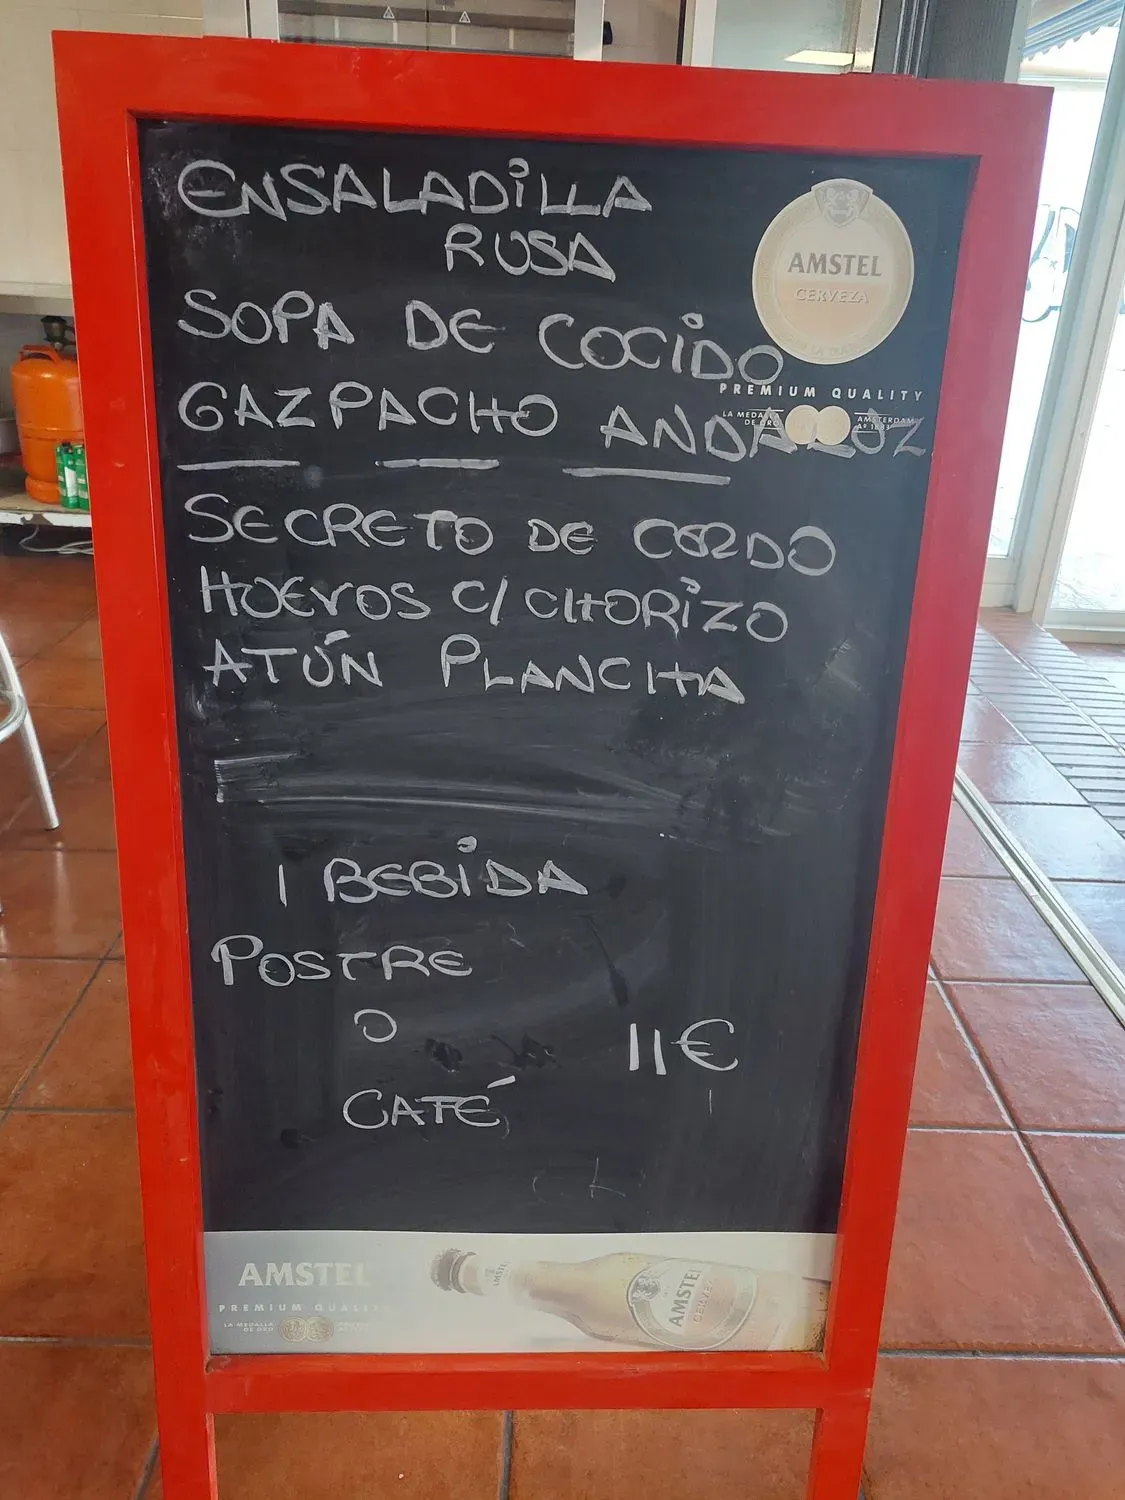 ENSALADILLA
RUSA
SOPA DE COCIDO
GAZPACHO ANDALUZ
SECRETO DE CERDO
HUEVOS C/CHORIZO
ATÚN PLANCHA
1 BEBIDA
POSTRE
O
CAFÉ
11€
AMSTEL
CERVEZA
PREMIUM QUALITY
LA MEDALLA
DE ORO
AMSTERDAM
Aº 1883
AMSTEL
PREMIUM QUALITY
LA MEDALLA
DE ORO
AMSTEL
AMSTEL
CERVEZA